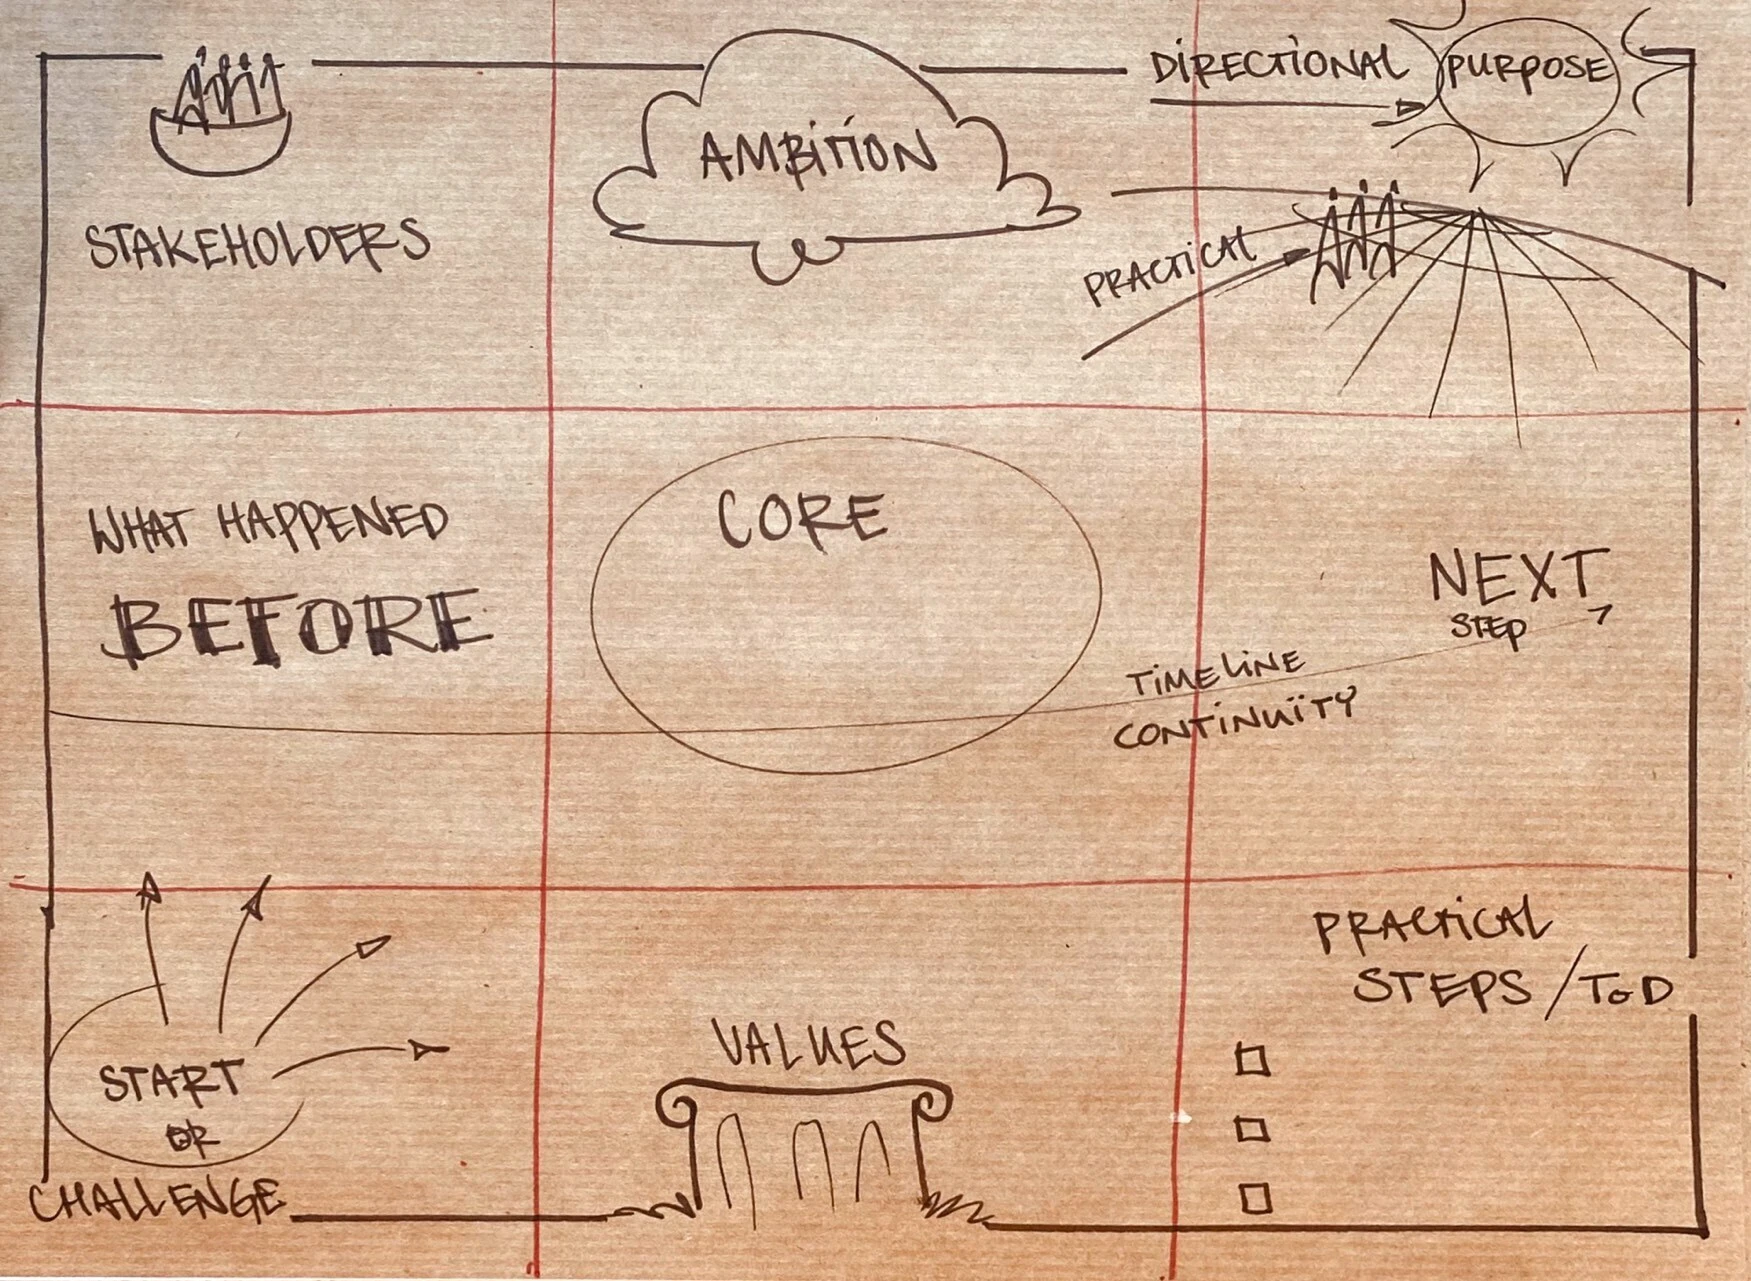 STAKEHOLDERS
AMBITION
DIRECTIONAL
PURPOSE
PRACTICAL
WHAT HAPPENED
BEFORE
CORE
NEXT
STEP
TIMELINE
CONTINUÏTY
START
OR
CHALLENGE
VALUES
PRACTICAL
STEPS / ToD